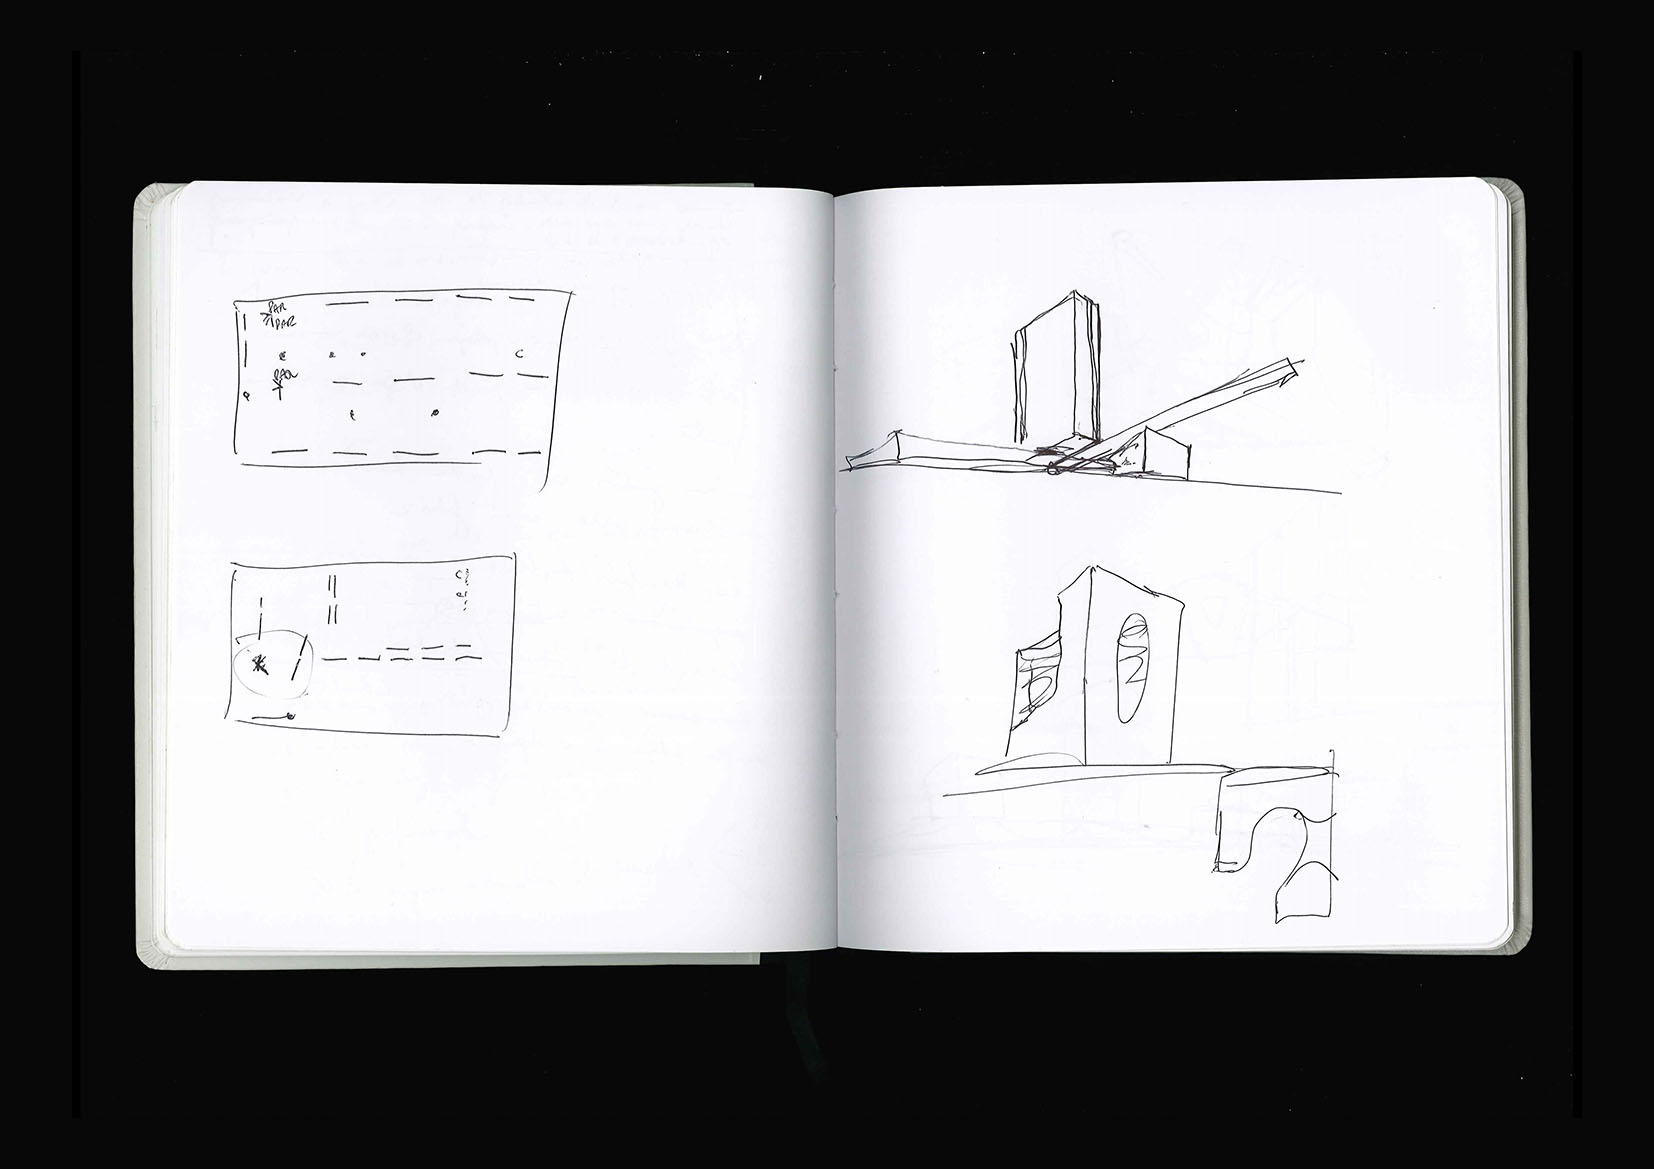 PAR
PAR
PAR